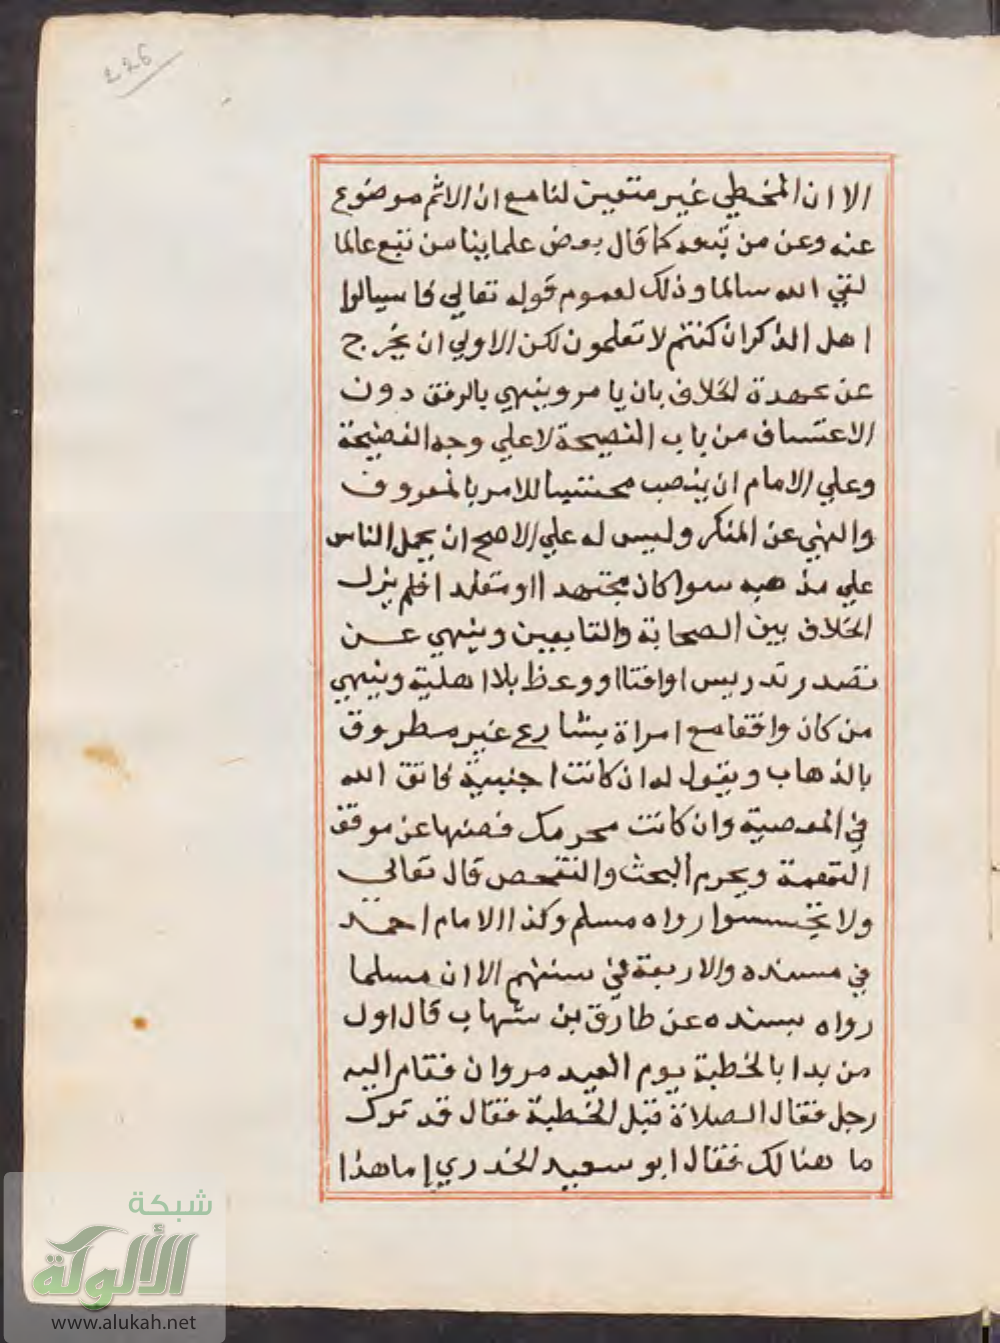 226
الا ان المخطي غير متعين لنا مع ان الاثم موضوع
عنه وعن من تبعه كما قال بعض علماينا من تبع عالما
لقي الله سالما وذلك لعموم قوله تعالي فاسيالوا
اهل الذكر ان كنتم لا تعلمون لكن الاولي ان يخرج
عن عهدة الخلاف بان يامر وينهي بالرفق دون
الاعتساف من باب النصيحة لا علي وجه الفضيحة
وعلي الامام ان ينصب محتسبا للامر بالمعروف
والنهي عن المنكر وليس له علي الاصح ان يحمل الناس
علي مذهبه سوا كان مجتهدا او مقلدا فلم يزل
الخلاف بين الصحابة والتابعين وينهي عن
تصدر تدريس او افتا او وعظ بلا اهلية وينهي
من كان واقفا مع امراة بشارع غير مطروق
بالذهاب ويقول له ان كانت اجنبية فاتق الله
في المعصية وان كانت محرمك فصنها عن موقف
التهمة ويحرم البحث والتفحص قال تعالي
ولا تجسسوا رواه مسلم وكذا الامام احمد
في مسنده والاربعة في سننهم الا ان مسلما
رواه بسنده عن طارق بن شهاب قال اول
من بدا بالخطبة يوم العيد مروان فقام اليه
رجل فقال الصلاة قبل الخطبة فقال قد ترك
ما هنالك فقال ابو سعيد الخدري اما هذا
شبكة
الألوكة
www.alukah.net